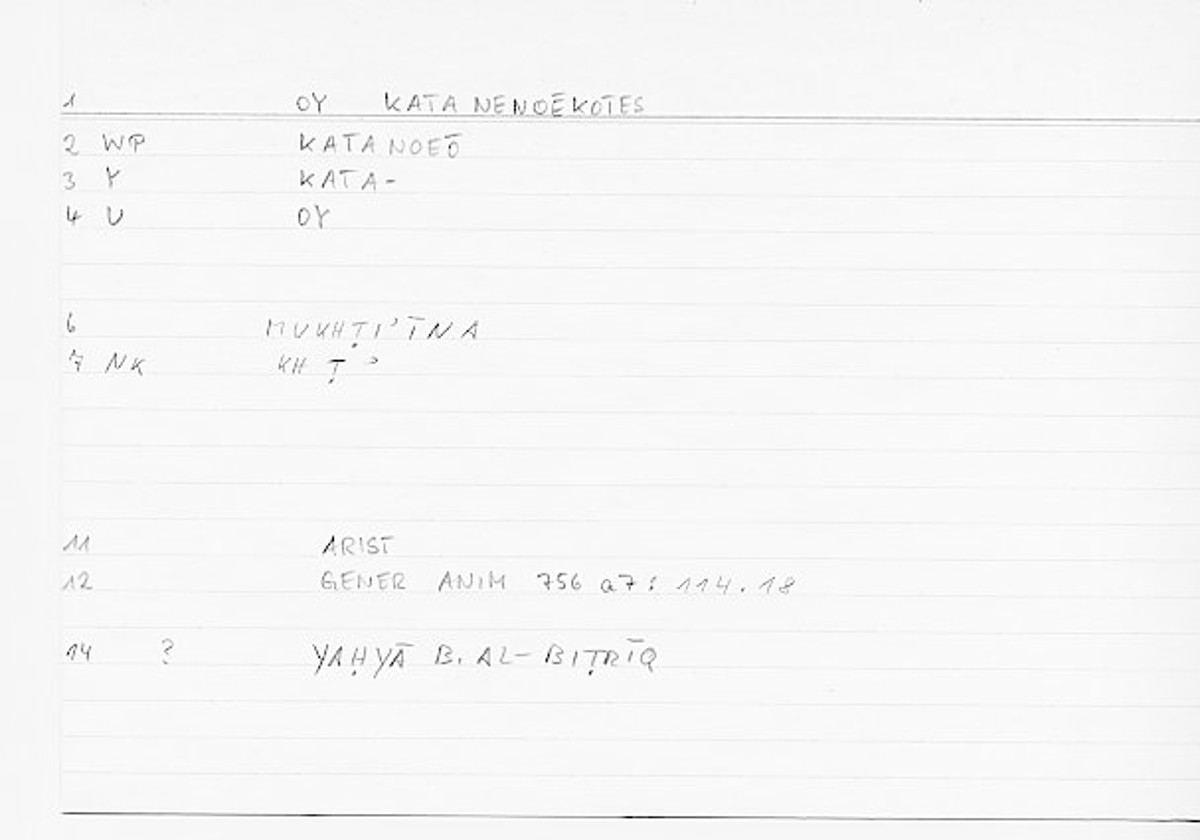 1 OY KATANENOĒKOTES
2 WP KATANOEŌ
3 Y KATA-
4 U OY
6 MUKHṬI'ĪNA
7 NK KHṬ'
11 ARIST
12 GENER ANIM 756 a7 : 114.18
14 ? YAḤYĀ B. AL-BIṬRĪQ